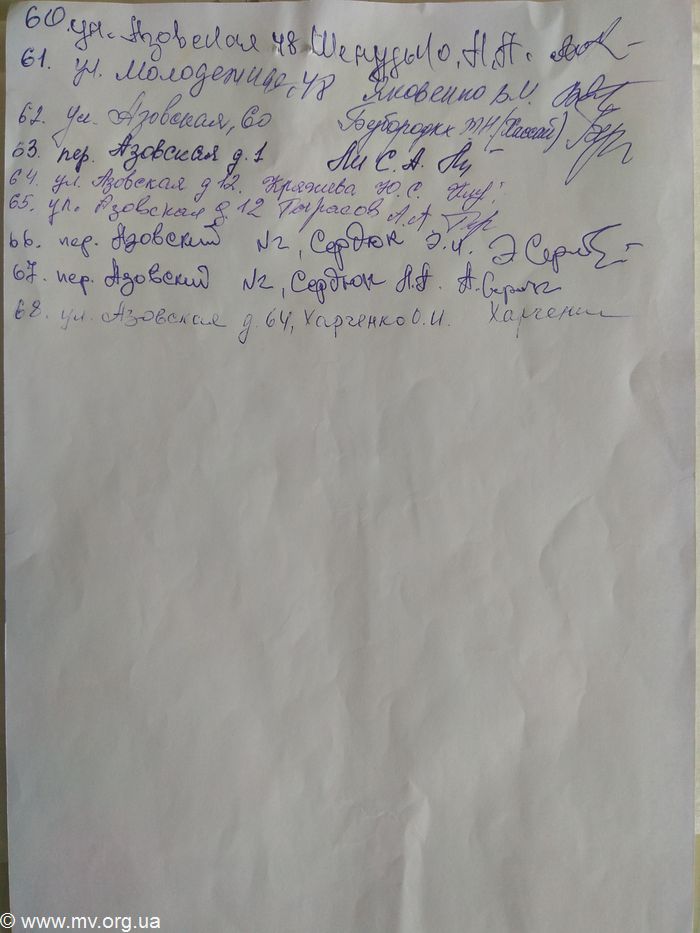 60. ул. Азовская 48 Шепудько, Н.П.
61. ул. Молодежная, 48 Яковенко В.М.
62. ул. Азовская, 60 Бебородки Т.Н.
63. пер. Азовская д. 1 Ли С. А. Ли
64. ул. Азовская д 12. Ю. С.
65. ул. Азовская д. 12 Тырасов А.А
66. пер. Азовский №2, Сердюк Э.И. Э Серд
67. пер. Азовский №2, Сердюк Н.П.
68. ул. Азовская д. 64, Харченко О.И. Харченко
© www.mv.org.ua